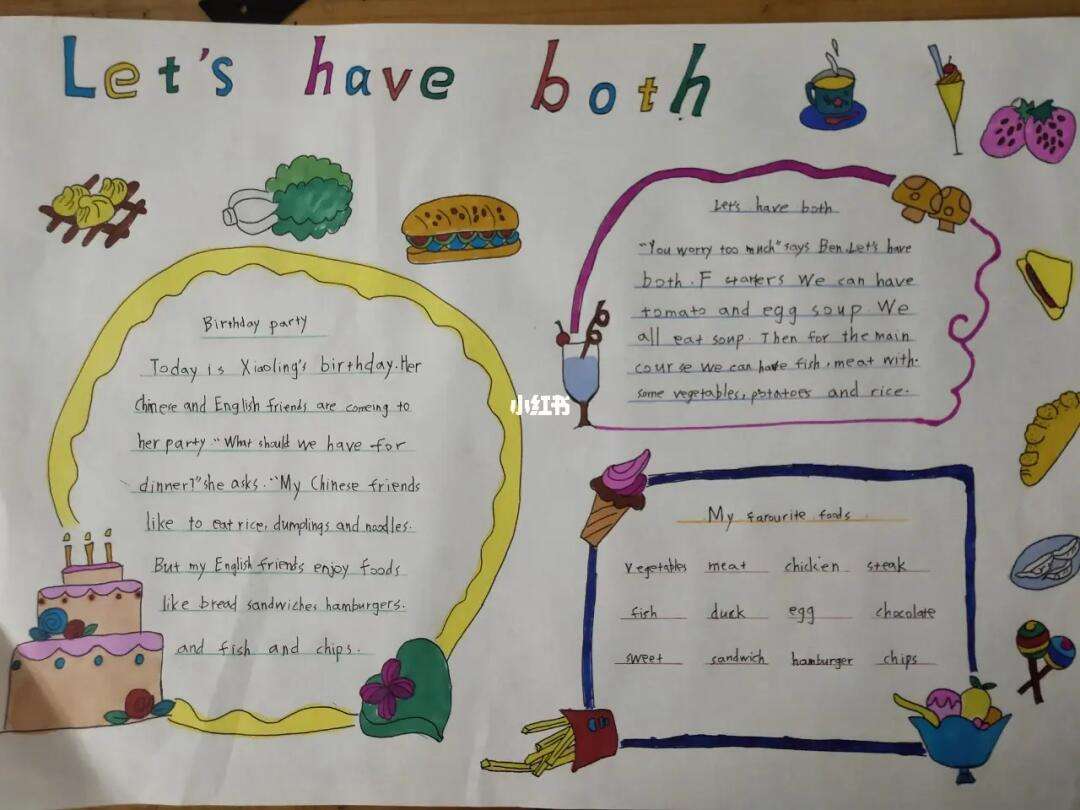 Let's have both
Birthday party
Today is Xiaoling's birthday. Her
Chinese and English friends are comeing to
her party. "What should we have for
dinner?" she asks. "My Chinese friends
like to eat rice, dumplings and noodles.
But my English friends enjoy foods
like bread sandwiches hamburgers.
and fish and chips.
Let's have both
"You worry too much" says Ben. Let's have
both. F starters We can have
tomato and egg soup. We
all eat soup. Then for the main
course we can have fish, meat with
some vegetables, potatoes and rice.
小红书
My farourite foods
vegetables meat chicken steak
fish duck egg chocolate
sweet sandwich hamburger chips